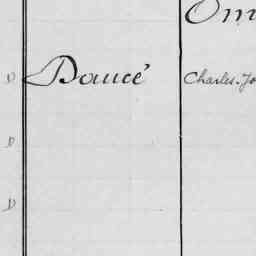 Om
D Doucé Charles-Jo
D
D